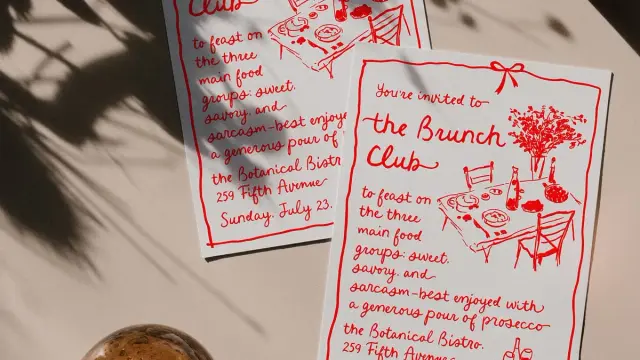 Club
to feast on
the three
main food
groups: sweet.
savory. and
sarcasm-best enjoye
a generous pour of
the Botanical Bistro
259 Fifth Avenue
Sunday. July 23.
You're invited to
the Brunch
Club
to feast on
the three
main food
groups: sweet.
savory. and
sarcasm-best enjoyed with
a generous pour of prosecco
the Botanical Bistro.
259 Fifth Avenue